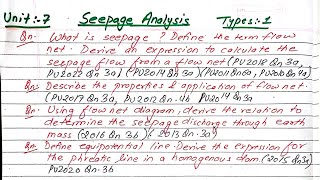 Unit:-7 Seepage Analysis Types:1
Qn:- What is seepage? Define the term flow
net. Derive an expression to calculate the
seepage flow from a flow net (PU2018 Qn 3a,
PU2022 Qn 3a) (PU2019 Qn 3a) (PU2011 Qn 6a, PU2010 Qn 4a)
Qn:- Describe the properties & application of flow net.
(PU2017 Qn 3a, PU2012 Qn. 4b PU2014 Qn 3a
Qn:- Using flow net diagram, derive the relation to
determine the seepage discharge through earth
mass (2016 Qn 3b) (2013 Qn. 3a)
Qn:- Define equipotential line. Derive the expression for
the phreatic line in a homogenous dam. (2015 Qn 3a)
PU2020 Qn. 3b